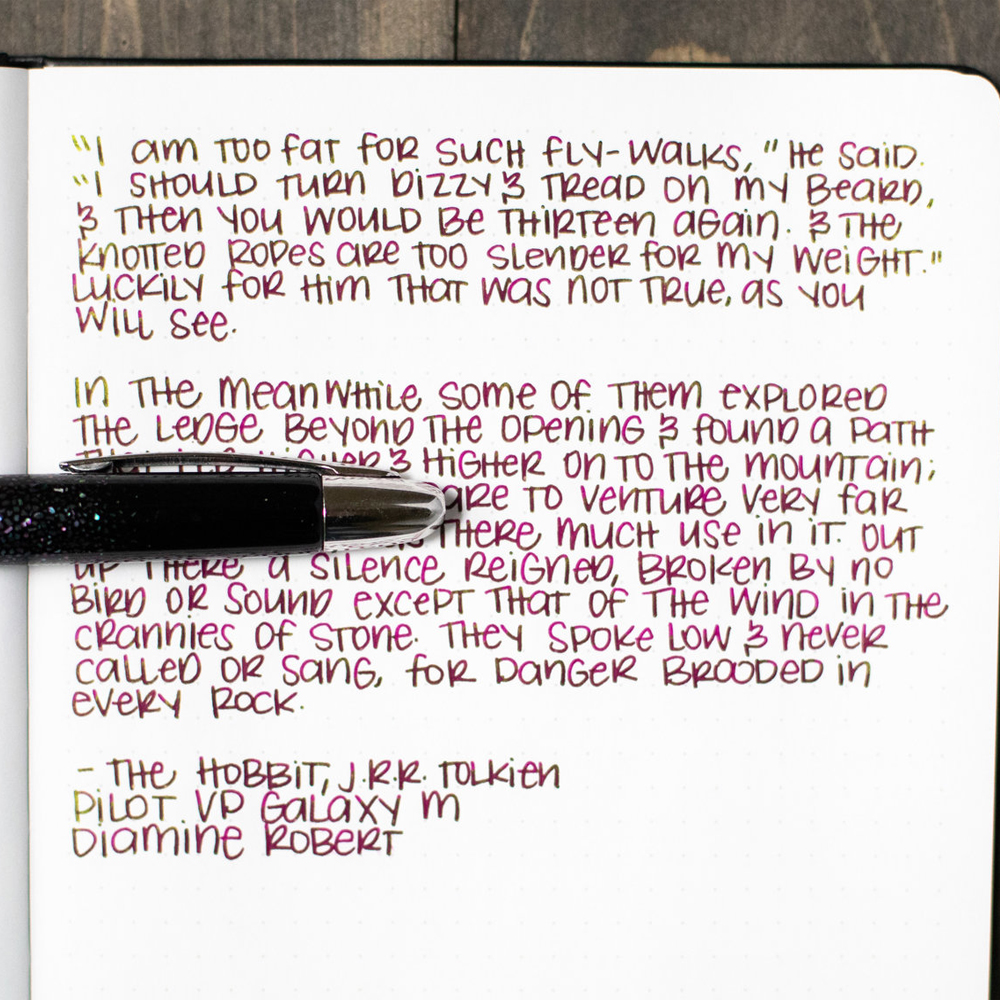 "I am too fat for such fly-walks," he said.
"I should turn dizzy & tread on my beard,
& then you would be thirteen again. & the
knotted ropes are too slender for my weight."
Luckily for him that was not true, as you
will see.
In the meanwhile some of them explored
the ledge beyond the opening & found a path
that led higher & higher on to the mountain;
are to venture very far
there much use in it. Out
up there a silence reigned, broken by no
bird or sound except that of the wind in the
crannies of stone. They spoke low & never
called or sang, for danger brooded in
every rock.
- The Hobbit, J.R.R. Tolkien
Pilot VP Galaxy M
Diamine Robert